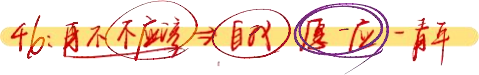 46: 再不不应该⇒自我 愿一应一青年